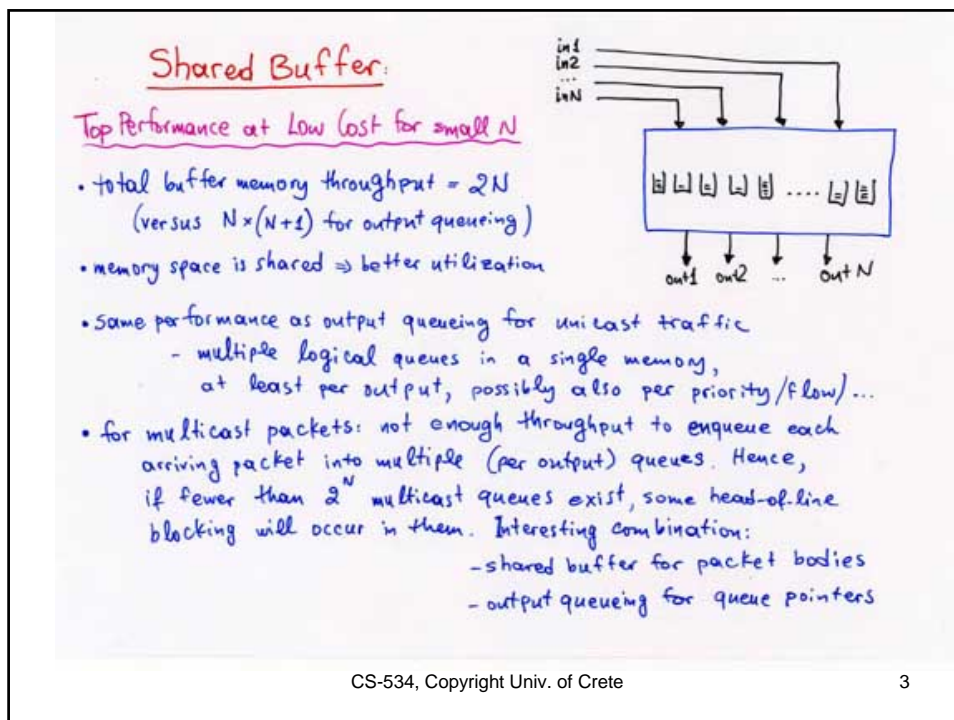 Shared Buffer:
Top Performance at Low Cost for small N
in1
in2
...
inN
• total buffer memory throughput = 2N
(versus N×(N+1) for output queueing)
• memory space is shared ⇒ better utilization
.....
out1 out2 ... out N
• Same performance as output queueing for unicast traffic
- multiple logical queues in a single memory,
at least per output, possibly also per priority/flow/...
• for multicast packets: not enough throughput to enqueue each
arriving packet into multiple (per output) queues. Hence,
if fewer than 2^N multicast queues exist, some head-of-line
blocking will occur in them. Interesting combination:
- shared buffer for packet bodies
- output queueing for queue pointers
CS-534, Copyright Univ. of Crete 3